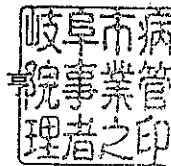 岐阜市病
院事業管
理者之印